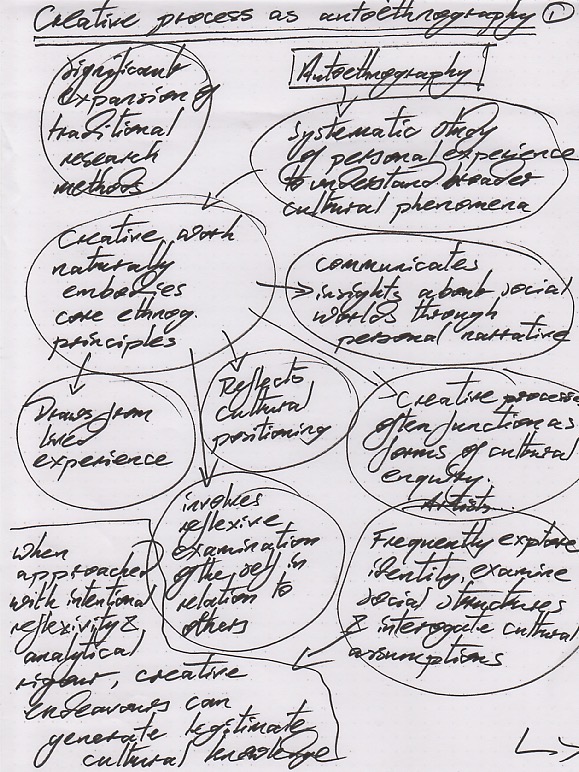 Creative process as autoethnography 1
Significant
expansion of
traditional
research
methods
Autoethnography
systematic study
of personal experience
to understand broader
cultural phenomena
Creative work
naturally
embodies
core ethnog.
principles
communicates
insights about social
worlds through
personal narrative
Draws from
lived
experience
Reflects
cultural
positioning
Creative process
often function as
forms of cultural
enquiry.
Artists...
involves
reflexive
examination
of the self in
relation to
others
Frequently explore
identity, examine
social structures
& interrogate cultural
assumptions
When
approached
with intentional
reflexivity &
analytical
rigour, creative
endeavours can
generate legitimate
cultural knowledge